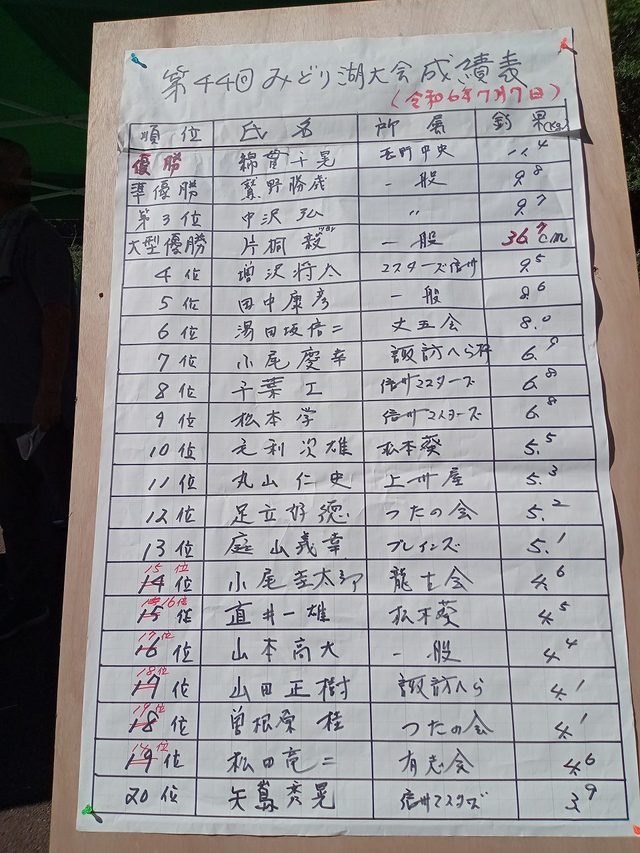 第44回みどり湖大会成績表
(令和6年7月7日)
順位 氏名 所属 釣果(kg)
優勝 綿貫千晃 長野中央 11.4
準優勝 鷲野勝成 一般 9.8
第3位 中沢弘 〃 9.7
大型優勝 片桐毅 一般 36.7cm
4位 増沢将太 マスターズ信州 9.5
5位 田中康彦 一般 8.6
6位 湯田坂信二 丈五会 8.0
7位 小尾慶幸 諏訪へら研 6.9
8位 千葉工 信州マスターズ 6.8
9位 松本学 信州マスターズ 6.8
10位 毛利次雄 松本葵 5.5
11位 丸山仁史 上州屋 5.3
12位 足立好德 つたの会 5.2
13位 庭山義幸 ブレインズ 5.1
15位
14位 小尾圭太郎 龍吉会 4.6
16位
15位 直井一雄 松本葵 4.5
17位
16位 山本高大 一般 4.4
18位
17位 山田正樹 諏訪へら 4.1
19位
18位 曽根原桂 つたの会 4.1
14位
19位 松田亮二 有志会 4.6
20位 矢島亮晃 信州マスターズ 3.9